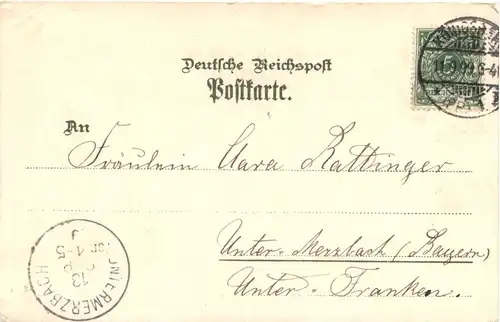 Deutsche Reichspost
Postkarte.
An
Fräulein Clara Rattinger
Unter-Merzbach (Bayern)
Unter-Franken.
UNTERMERZBACH
13